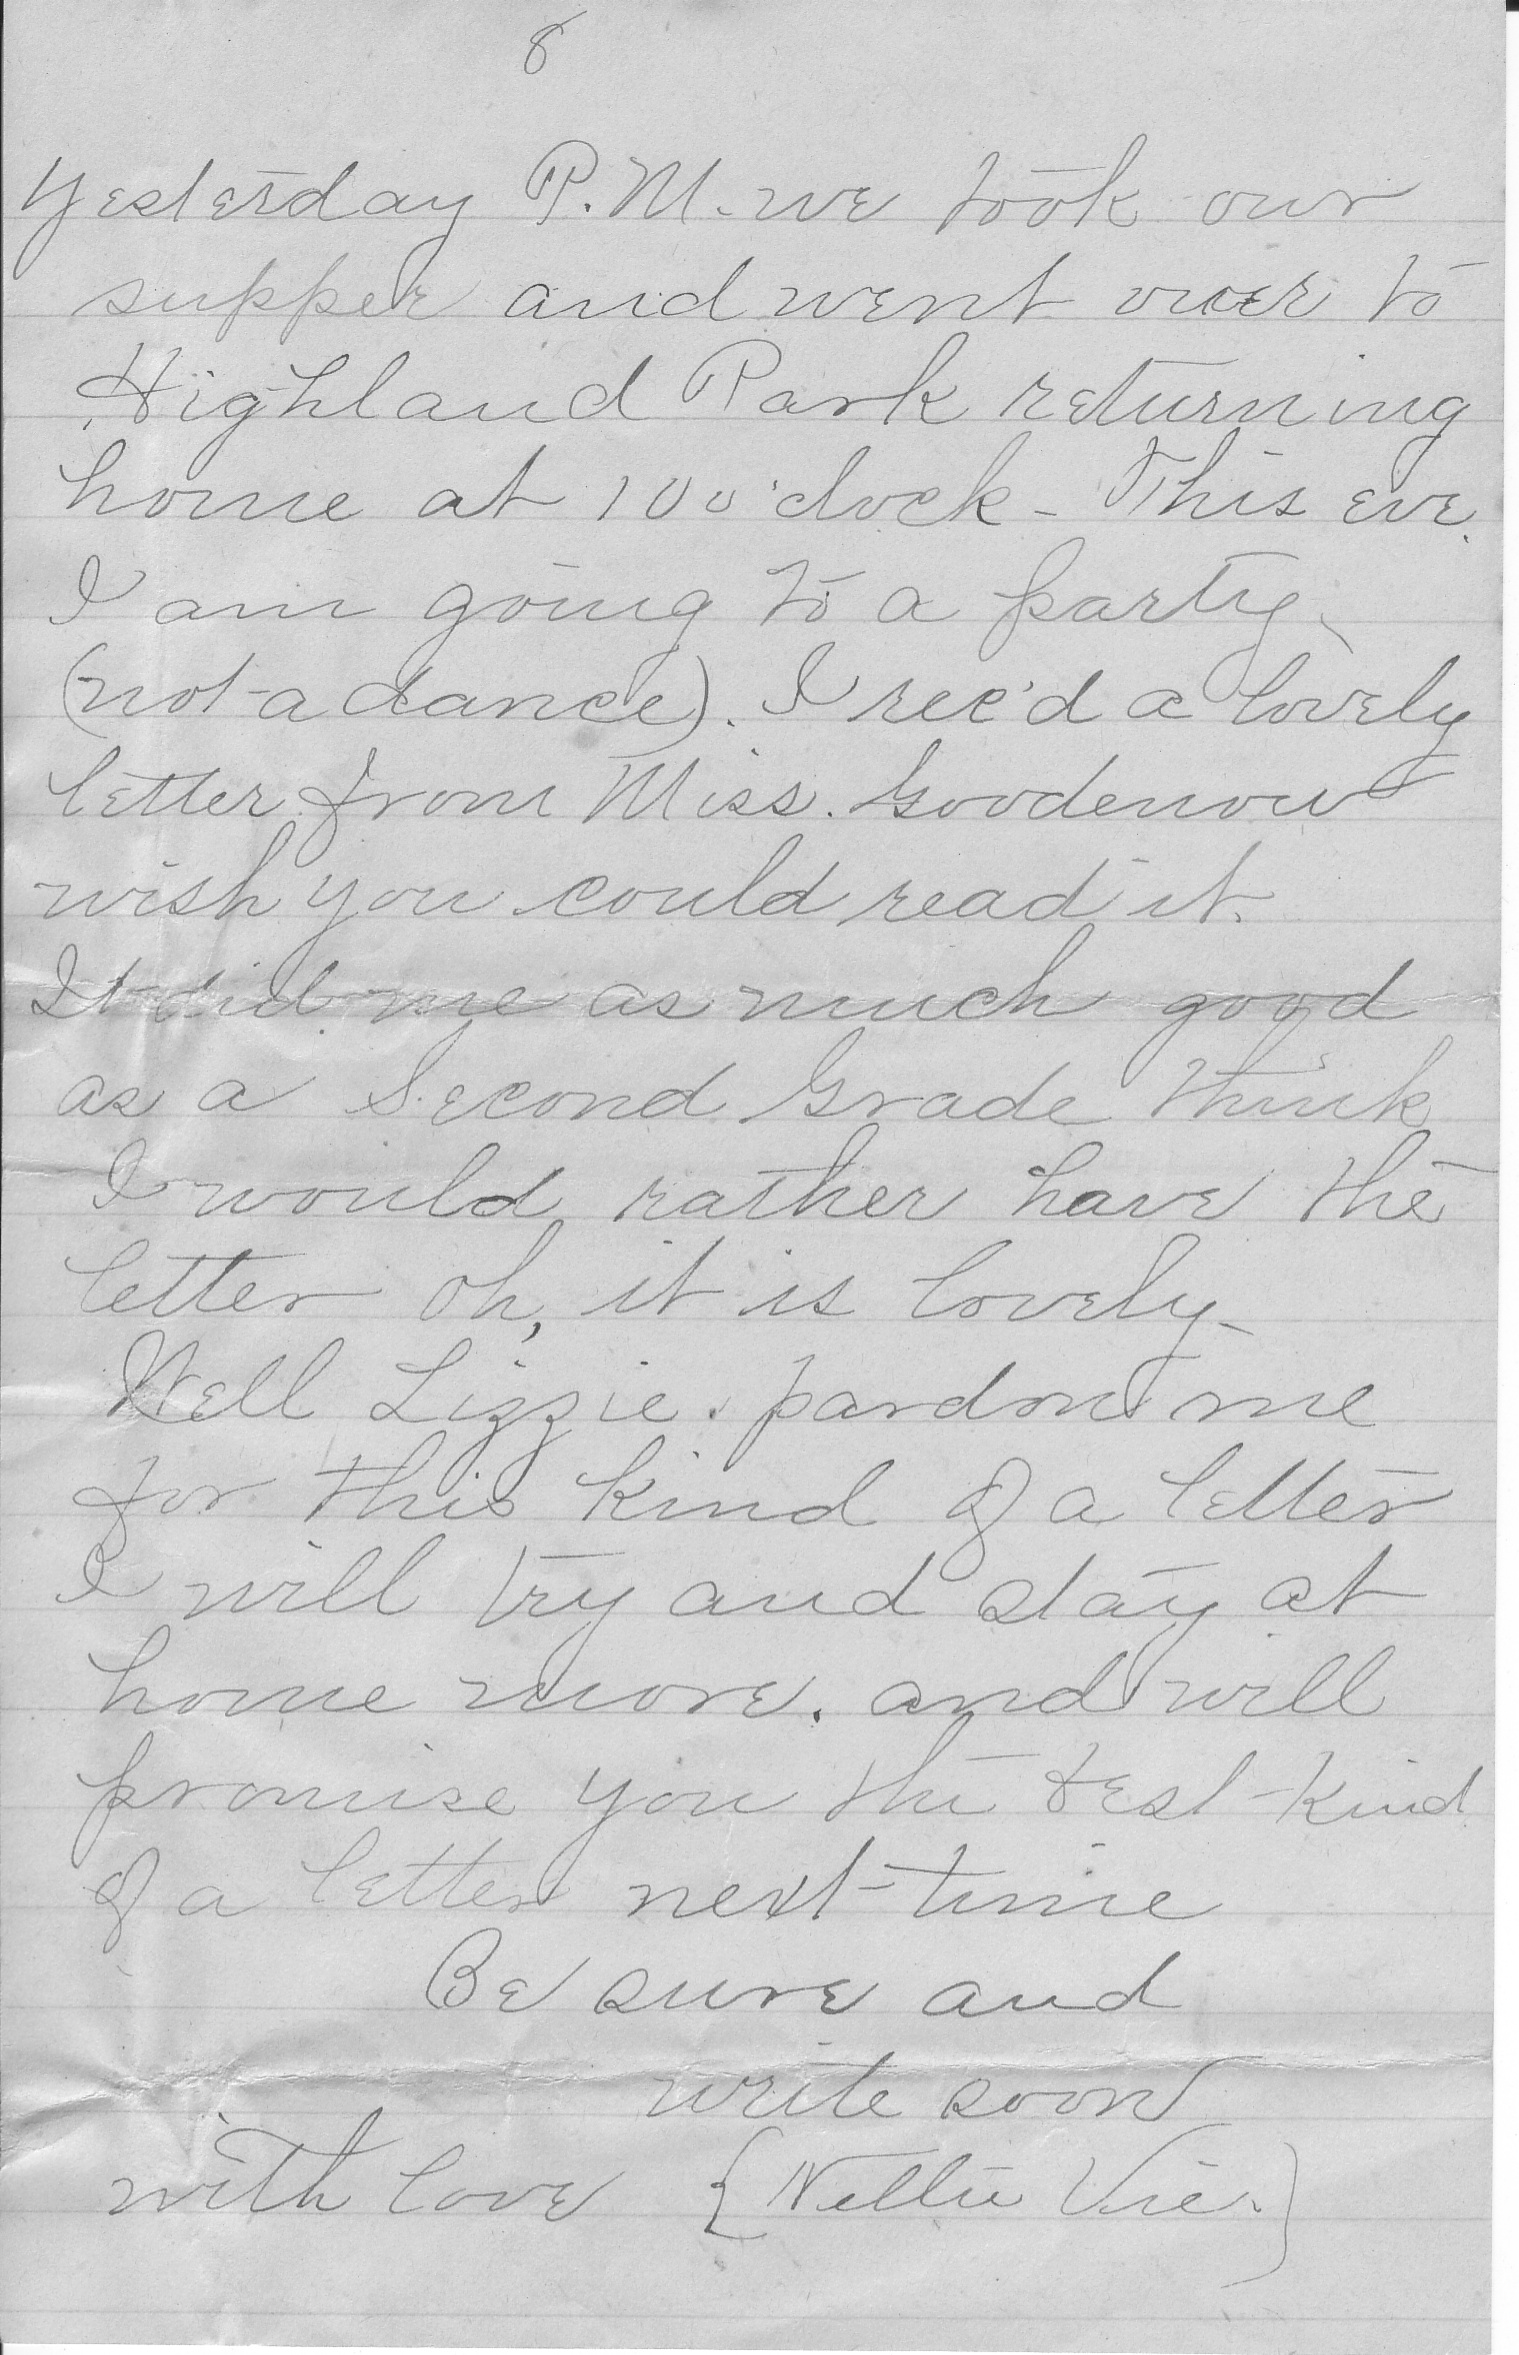 8
Yesterday P.M. we took our
supper and went over to
Highland Park returning
home at 10 o'clock - This eve.
I am going to a party
(not a dance). I rec'd a lovely
letter from Miss. Goodenow
wish you could read it.
It did me as much good
as a Second Grade think
I would rather have the
letter oh, it is lovely -
Well Lizzie. pardon me
for this kind of a letter
I will try and stay at
home more. and will
promise you the best kind
of a letter next time
Be sure and
write soon
with love {Nellie Vie.}